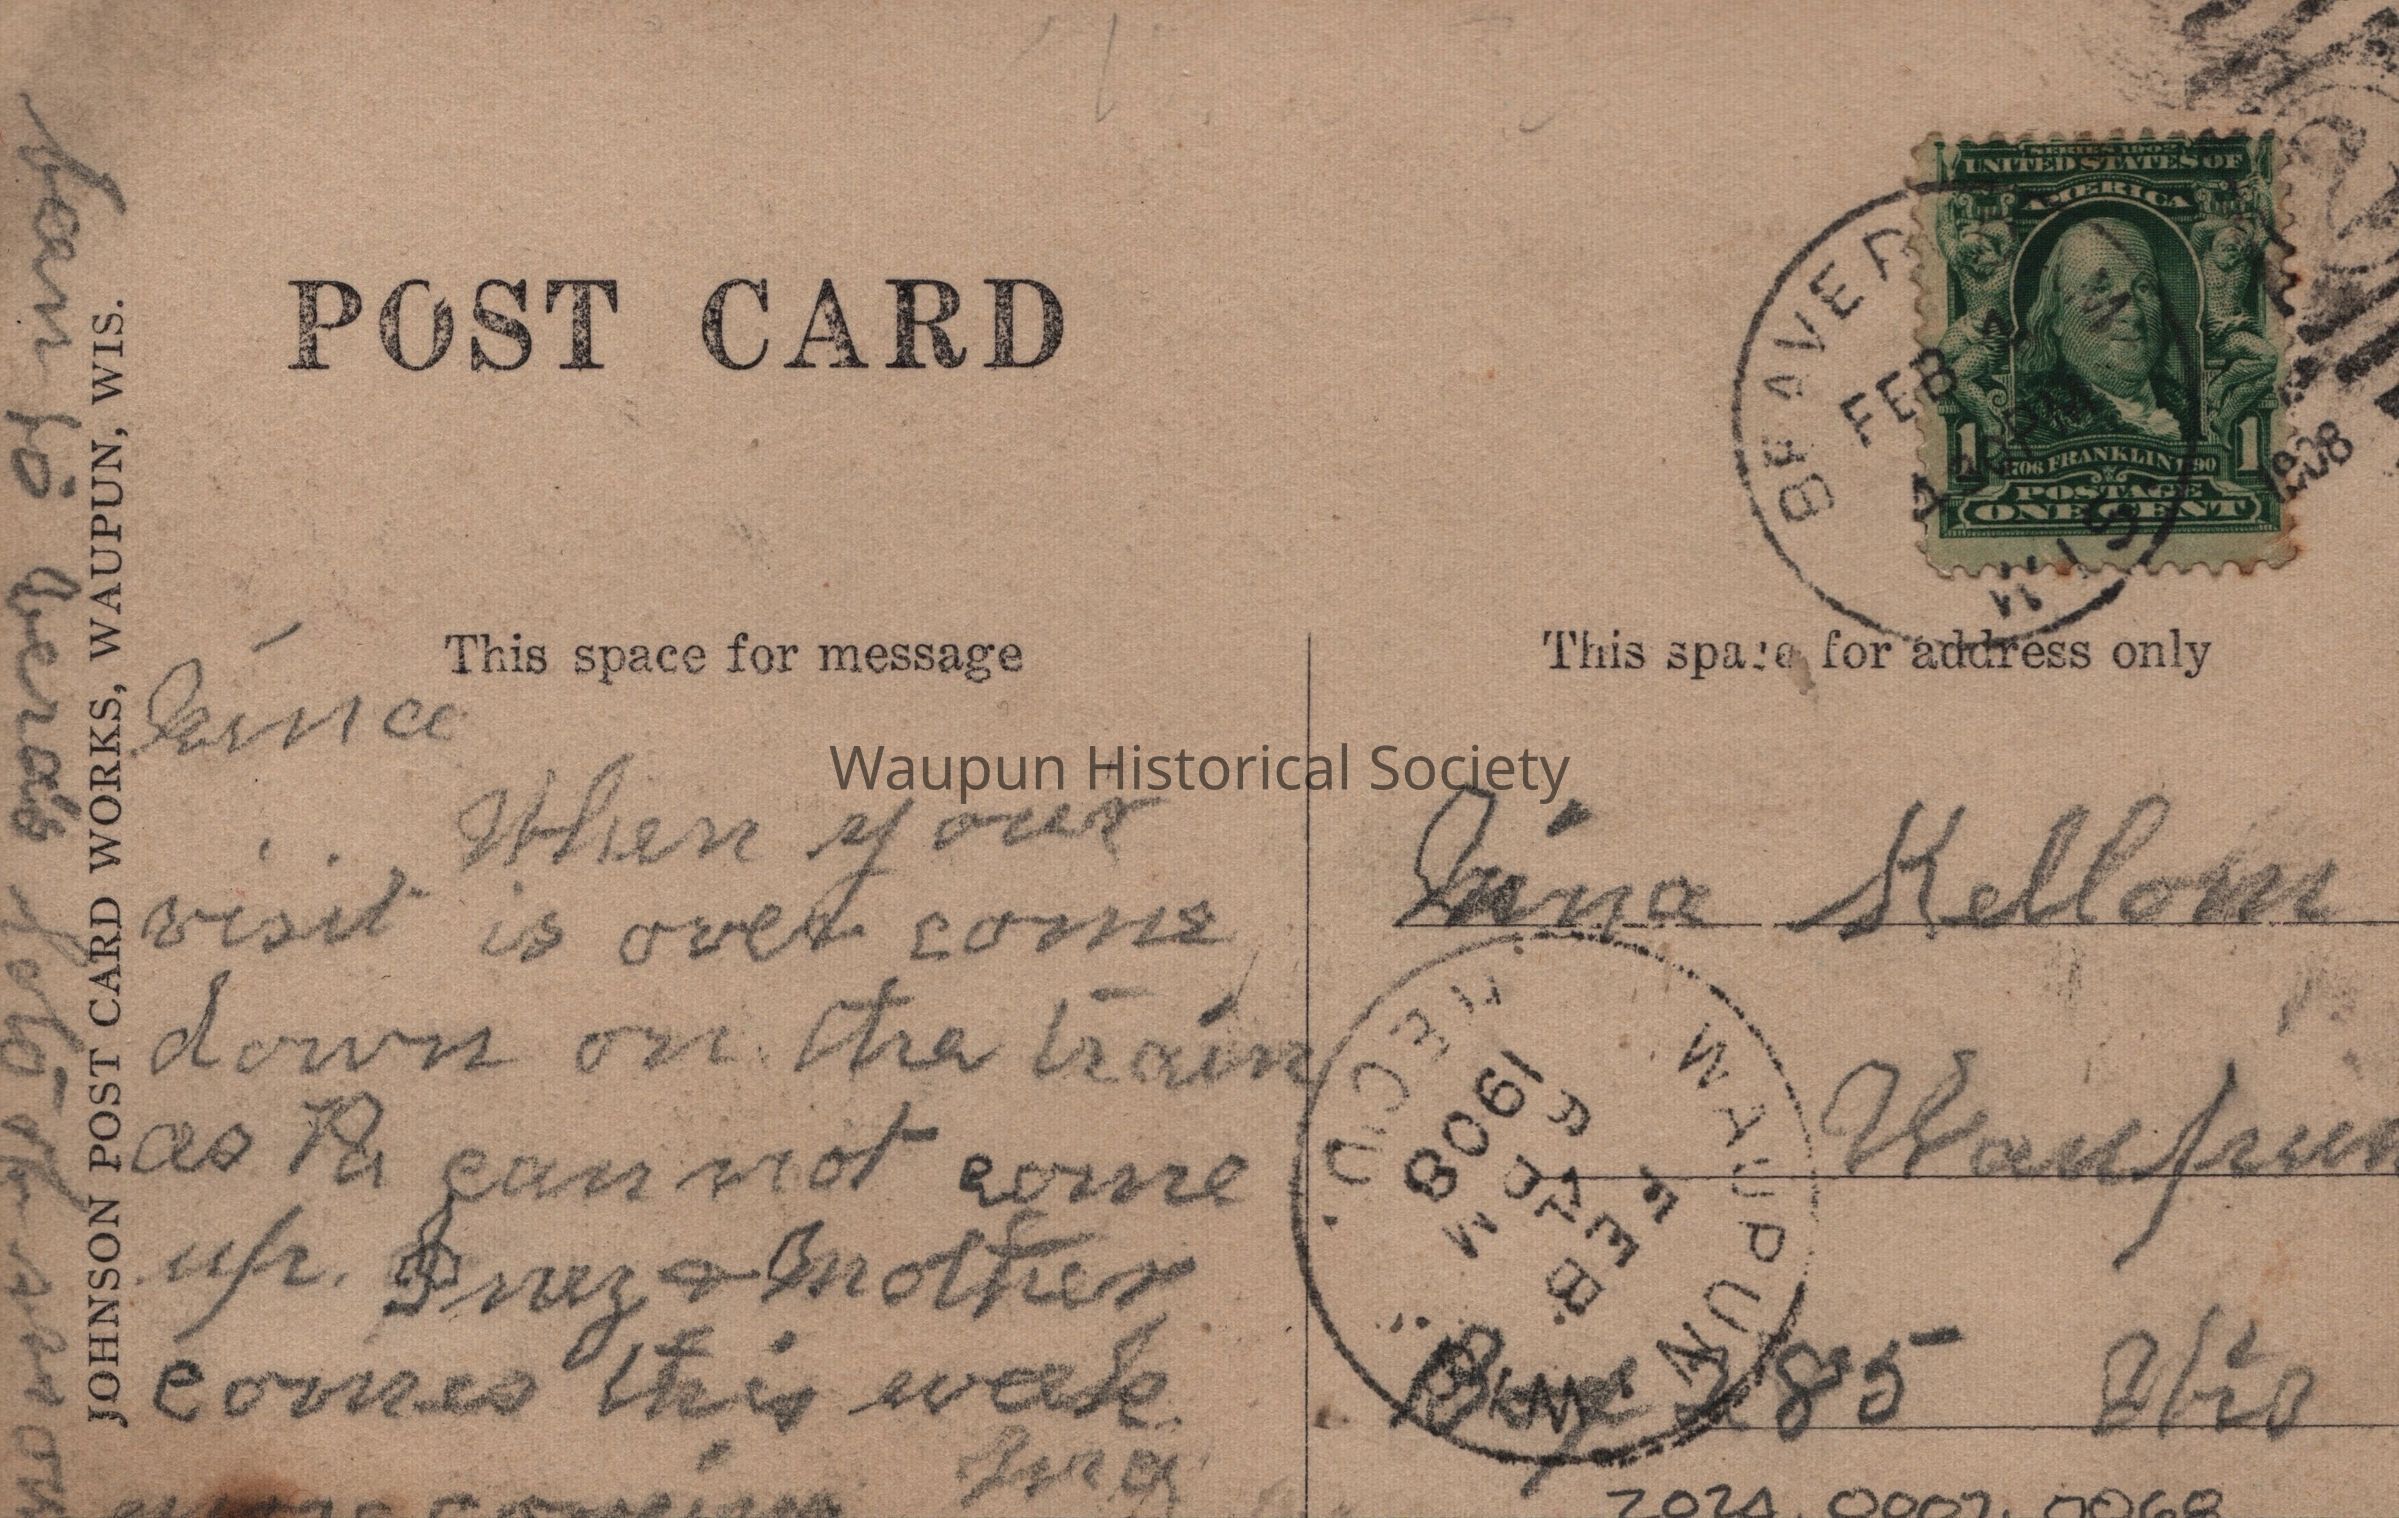 POST CARD
This space for message
This space for address only
JOHNSON POST CARD WORKS, WAUPUN, WIS.
SERIES 1902
UNITED STATES OF
AMERICA
1706 FRANKLIN 1790
1 1
POSTAGE
ONE CENT
BEAVER
FEB
PM
1908
WIS
Waupun Historical Society
When your
visit is over come
down on the train
as Pa can not come
up. Inez & Mother
comes this week
Kellom
Waupun
Box 285 Wis
WAUPUN
WIS.
RECD.
FEB
1908
2024.0007.0068